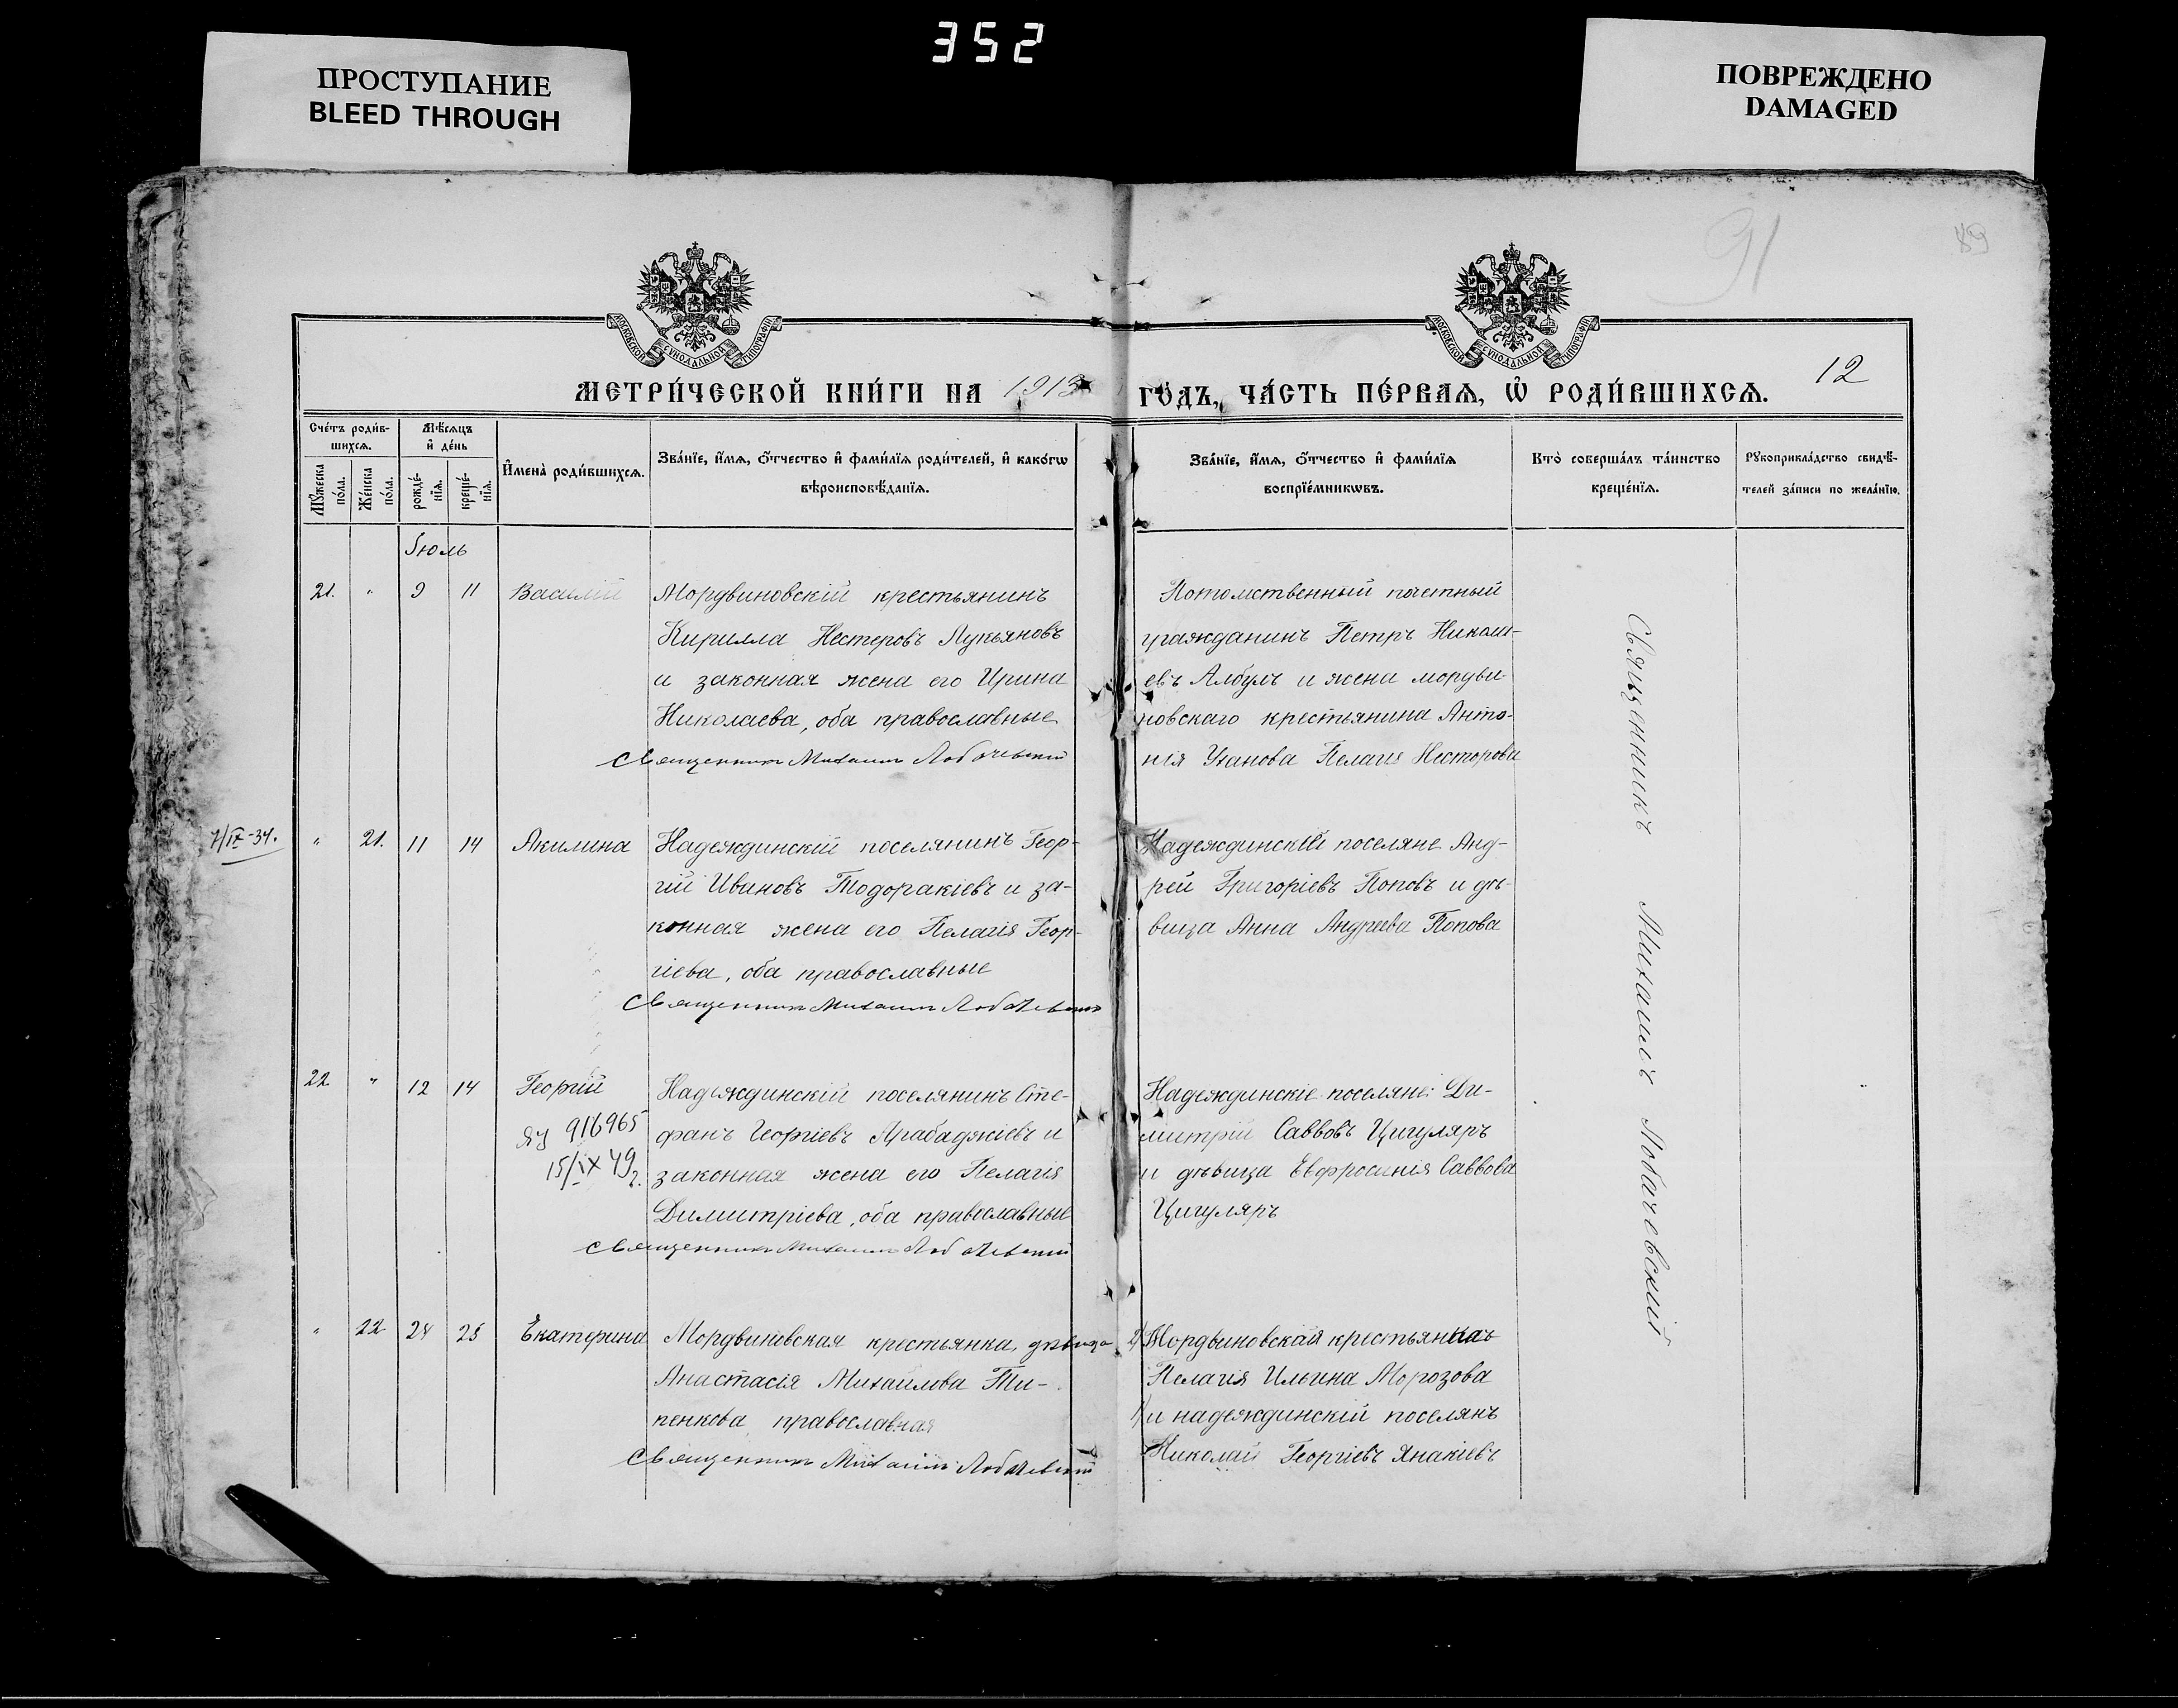 352
ПРОСТУПАНИЕ
BLEED THROUGH
ПОВРЕЖДЕНО
DAMAGED
91
89
МОСКОВСКОЙ СѴНОДАЛЬНОЙ ТИПОГРАФІИ
МОСКОВСКОЙ СѴНОДАЛЬНОЙ ТИПОГРАФІИ
12
МЕТРИ́ЧЕСКОЙ КНИ́ГИ НА 1913 ГО́ДЪ, ЧА́СТЬ ПЕ́РВАѦ, Ѡ҆ РОДИ́ВШИХСѦ.
Сче́тъ роди́в-
шихсѧ.
Мѣ́сѧцъ
и҆ де́нь
Мꙋ́жеска
по́ла.
Же́нска
по́ла.
рожде́-
нїѧ.
креще́-
нїѧ.
И҆мена̀ роди́вшихсѧ.
Зва́нїе, и҆́мѧ, ѻ҆́тчество и҆ фами́лїѧ роди́телей, и҆ како́гѡ
вѣроисповѣ́данїѧ.
Зва́нїе, и҆́мѧ, ѻ҆́тчество и҆ фами́лїѧ
воспрїе́мникѡвъ.
Кто̀ соверша́лъ та́инство
креще́нїѧ.
Рꙋкоприкла́дство свидѣ́-
телей за́писи по жела́нїю.
Іюль
21. " 9 11 Василій
Мордвиновскій крестьянинъ
Кирилла Нестеровъ Лукьяновъ
и законная жена его Ирина
Николаева, оба православные
Священникъ Михаилъ Лобачевскій
Потомственный почетный
гражданинъ Петръ Никола-
евъ Албулъ и жена мордви-
новскаго крестьянина Анто-
нія Уханова Пелагія Несторова
Священникъ Михаилъ Лобачевскій
7/IX-34.
" 21. 11 14 Акилина
Надеждинскій поселянинъ Геор-
гій Ивановъ Тодоракіевъ и за-
конная жена его Пелагія Геор-
гіева, оба православные
Священникъ Михаилъ Лобачевскій
Надеждинскіе поселяне Анд-
рей Григоріевъ Поповъ и дѣ-
вица Анна Андреева Попова
22. " 12 14 Георгій
ЯУ 916965
15/IX 49 г.
Надеждинскій поселянинъ Сте-
фанъ Георгіевъ Арабаджіевъ и
законная жена его Пелагія
Димитріева, оба православные
Священникъ Михаилъ Лобачевскій
Надеждинскіе поселяне: Ди-
митрій Саввовъ Цигуляръ
и дѣвица Евфросинія Саввова
Цигуляръ
" 22. 24 25 Екатерина
Мордвиновская крестьянка, дѣвица
Анастасія Михаилова Ти-
пенкова православная
Священникъ Михаилъ Лобачевскій
2) Мордвиновская крестьянка
Пелагія Ильина Морозова
1) и надеждинскій поселянъ
Николай Георгіевъ Янакіевъ